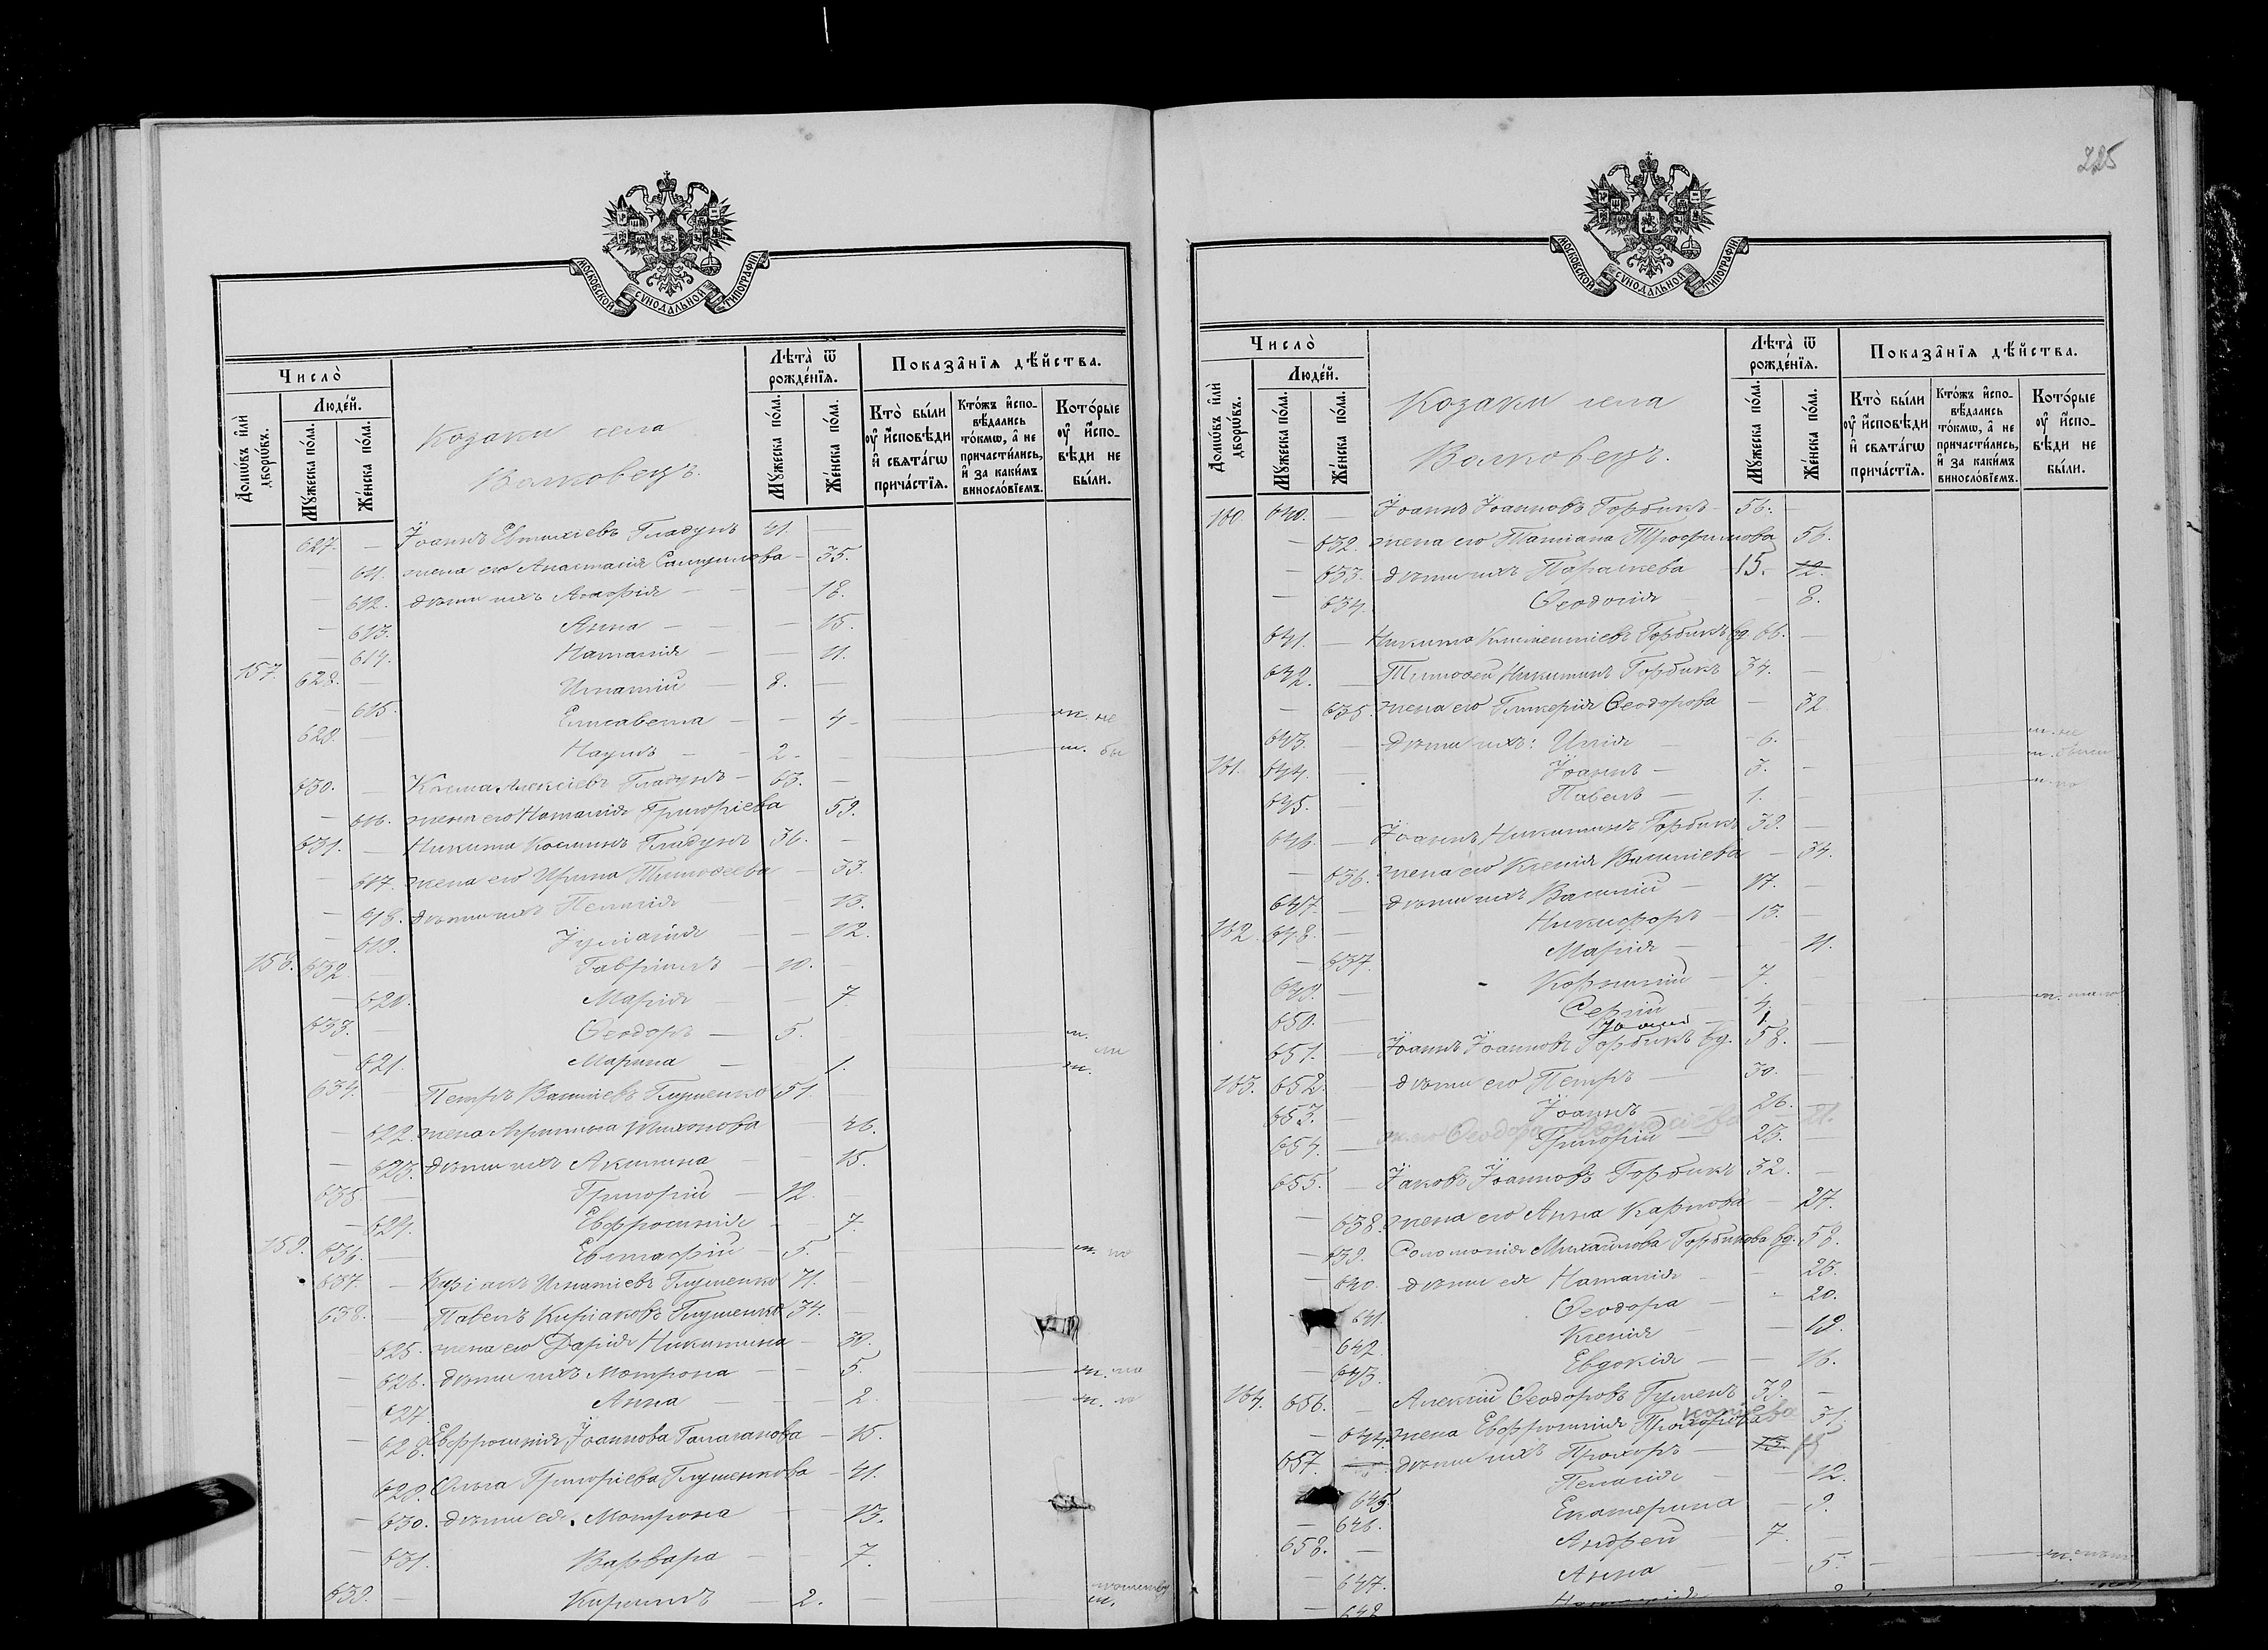 МОСКОВСКОЙ СѴНОДАЛЬНОЙ ТИПОГРАФІИ
Число̀
Домѡ́въ и҆лѝ дворѡ́въ.
Люде́й.
Мꙋ́жеска по́ла.
Же́нска по́ла.
Козаки села
Волковецъ.
Лѣ́та ѿ рожде́нїѧ.
Мꙋ́жеска по́ла.
Же́нска по́ла.
Показа̂нїѧ дѣ́йства.
Кто̀ бы́ли ᲂу҆ и҆́сповѣди и҆ свѧта́гѡ прича́стїѧ.
Кто́жъ и҆спо-вѣ́дались то́кмѡ, а҆ не причасти́лись, и҆ за каки́мъ винosло́вїемъ.
Кото́рые ᲂу҆ и҆́спо-вѣди не бы́ли.
627. — Іоаннъ Евтихіевъ Гладунъ 41. —
— 611. жена его Анастасія Самуилова — 35.
— 612. дѣти ихъ Агафія — 18.
— 613. Анна — 15.
— 614. Наталія — 11.
157. 628. — Игнатій 8. —
— 615. Елисавета — 4 м. не
629. — Наумъ — 2. — м. бы
630. — Косма Алексіевъ Гладунъ — 65. —
— 616. жена его Наталія Григоріева 59.
631. — Никита Косминъ Гладунъ 36. —
— 617. жена его Ирина Тимоѳеева — 33.
— 618. дѣти ихъ Пелагія — 15.
— 619. Іуліанія — 12.
158. 632. — Гавріилъ — 10. —
— 620. Марія — 7
633. — Ѳеодоръ — 5. м.
— 621. Марина — 1. м. ли
634. — Петръ Василіевъ Глушенко 51 —
— 622. жена Агриппина Тихонова 46.
— 623. дѣти ихъ Акилина — 15.
635. — Григорій — 12. —
— 624. Евфросинія — 7.
159. 636. — Евстафій — 5. м. по
637. — Киріакъ Игнатіевъ Глушенко 71. —
638. — Павелъ Киріаковъ Глушенко 34. —
— 625. жена его Дарія Никитина — 30.
— 626. дѣти ихъ Мотрона — 5. м.
— 627. Анна — 2. м.
— 628. Евфросинія Іоаннова — 15.
— 629. Ольга Григоріева Глушенкова — 41.
— 630. дѣти ея. Мотрона — 13.
— 631. Варвара — 7.
639. — Кириллъ — 2. — м.
225
МОСКОВСКОЙ СѴНОДАЛЬНОЙ ТИПОГРАФІИ
Число̀
Домѡ́въ и҆лѝ дворѡ́въ.
Люде́й.
Мꙋ́жеска по́ла.
Же́нска по́ла.
Козаки села
Волковецъ.
Лѣ́та ѿ рожде́нїѧ.
Мꙋ́жеска по́ла.
Же́нска по́ла.
Показа̂нїѧ дѣ́йства.
Кто̀ бы́ли ᲂу҆ и҆́сповѣди и҆ свѧта́гѡ прича́стїѧ.
Кто́жъ и҆спо-вѣ́дались то́кмѡ, а҆ не причасти́лись, и҆ за каки́мъ винosло́вїемъ.
Кото́рые ᲂу҆ и҆́спо-вѣди не бы́ли.
160. 640. — Іоаннъ Іоанновъ Горбикъ — 56. —
— 632. жена его Татіана Трофимова 56.
— 633. дѣти ихъ Параскева — 15. 12.
— 634. Ѳеодосія — 8.
641. — Никита Климентіевъ Горбикъ вд. 66. —
642. — Тимоѳей Никитинъ Горбикъ 34. —
— 635. жена его Гликерія Ѳеодорова — 32
643. — дѣти ихъ: Илія — 6. — м. не
161. 644. — Іоаннъ — 3. — м. были
645. — Павелъ — 1. — м. по
646. — Іоаннъ Никитинъ Горбикъ 38. —
— 636. жена его Ксенія Василіева — 34.
647. — дѣти ихъ Василій — 17. —
162. 648. — Никифоръ — 13. —
— 637. Марія — 11.
649. — Корнилій — 7. —
650. — Сергій — 4 — м.
651. — Іоаннъ Іоанновъ Горбикъ вд. 58. —
163. 652. — дѣти его Петръ — 30. —
653. — Іоаннъ — 26. —
ж. его Ѳеодора 21.
654. — Григорій — 23. —
655. — Іаковъ Іоанновъ Горбикъ 32. —
— 638. жена его Анна Карпова — 27.
— 639. Соломонія Михайлова Горбикова вд. 58.
— 640. дѣти ея Наталія — 23.
641. Ѳеодора — 20.
642. Ксенія — 19.
643. Евдокія — 16.
164. 656. — Алексій Ѳеодоровъ Гуменъ 39. —
— 644. жена Евфросинія 37.
657. — дѣти ихъ Прохоръ — 15
645. Пелагія — 12.
— 646. Екатерина — 9.
658. — Андрей — 7. —
— 647. Анна — 5. м.
— 648